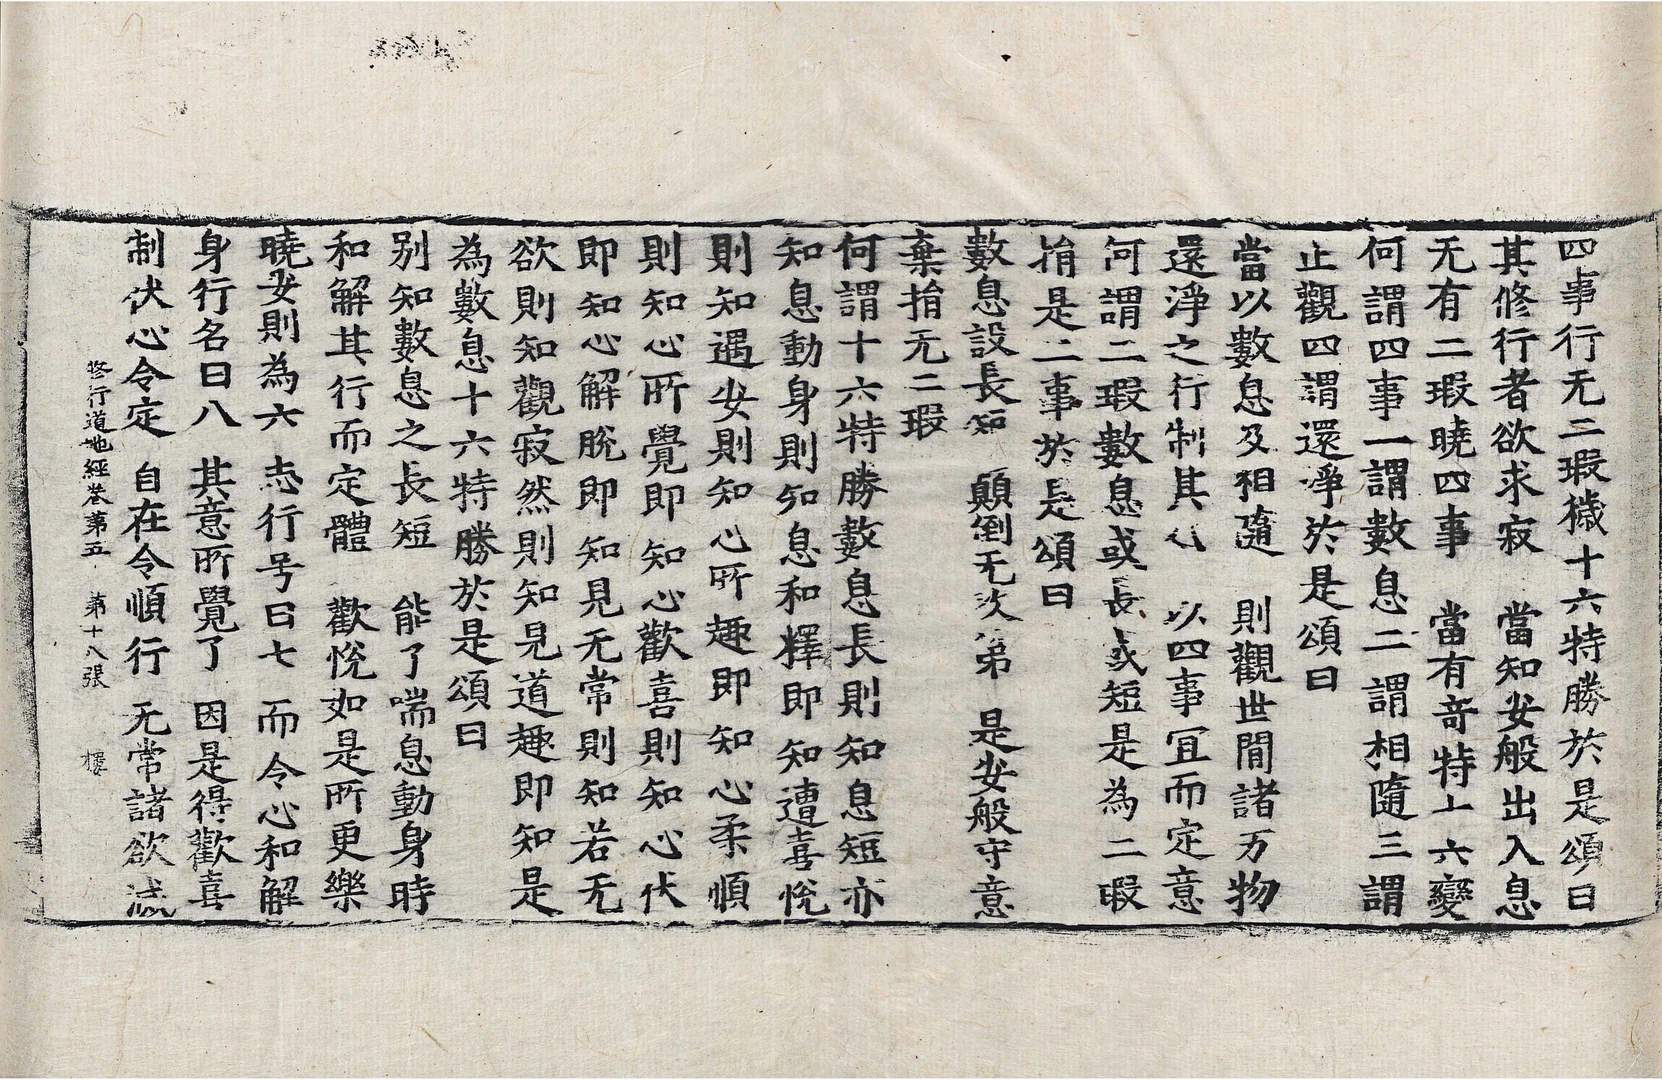 四事行无二瑕穢十六特勝於是頌曰
其修行者欲求寂　當知安般出入息
无有二瑕曉四事　當有竒特十六變
何謂四事一謂數息二謂相隨三謂
止觀四謂還淨於是頌曰
當以數息及相隨　則觀世間諸万物
還淨之行制其心　以四事冝而定意
何謂二瑕數息或長或短是為二瑕
捐是二事於是頌曰
數息設長短　顛倒无次第　是安般守意
棄捐无二瑕
何謂十六特勝數息長則知息短亦
知息動身則知息和釋即知遭喜悅
則知遇安則知心所趣即知心柔順
則知心所覺即知心歡喜則知心伏
即知心解脫即知見无常則知若无
欲則知觀寂然則知見道趣即知是
為數息十六特勝於是頌曰
别知數息之長短　能了喘息動身時
和解其行而定體　歡悅如是所更樂
曉安則為六　志行号曰七　而令心和解
身行名曰八　其意所覺了　因是得歡喜
制伏心令定　自在令順行　无常諸欲滅
修行道地經卷第五　第十八張　樓